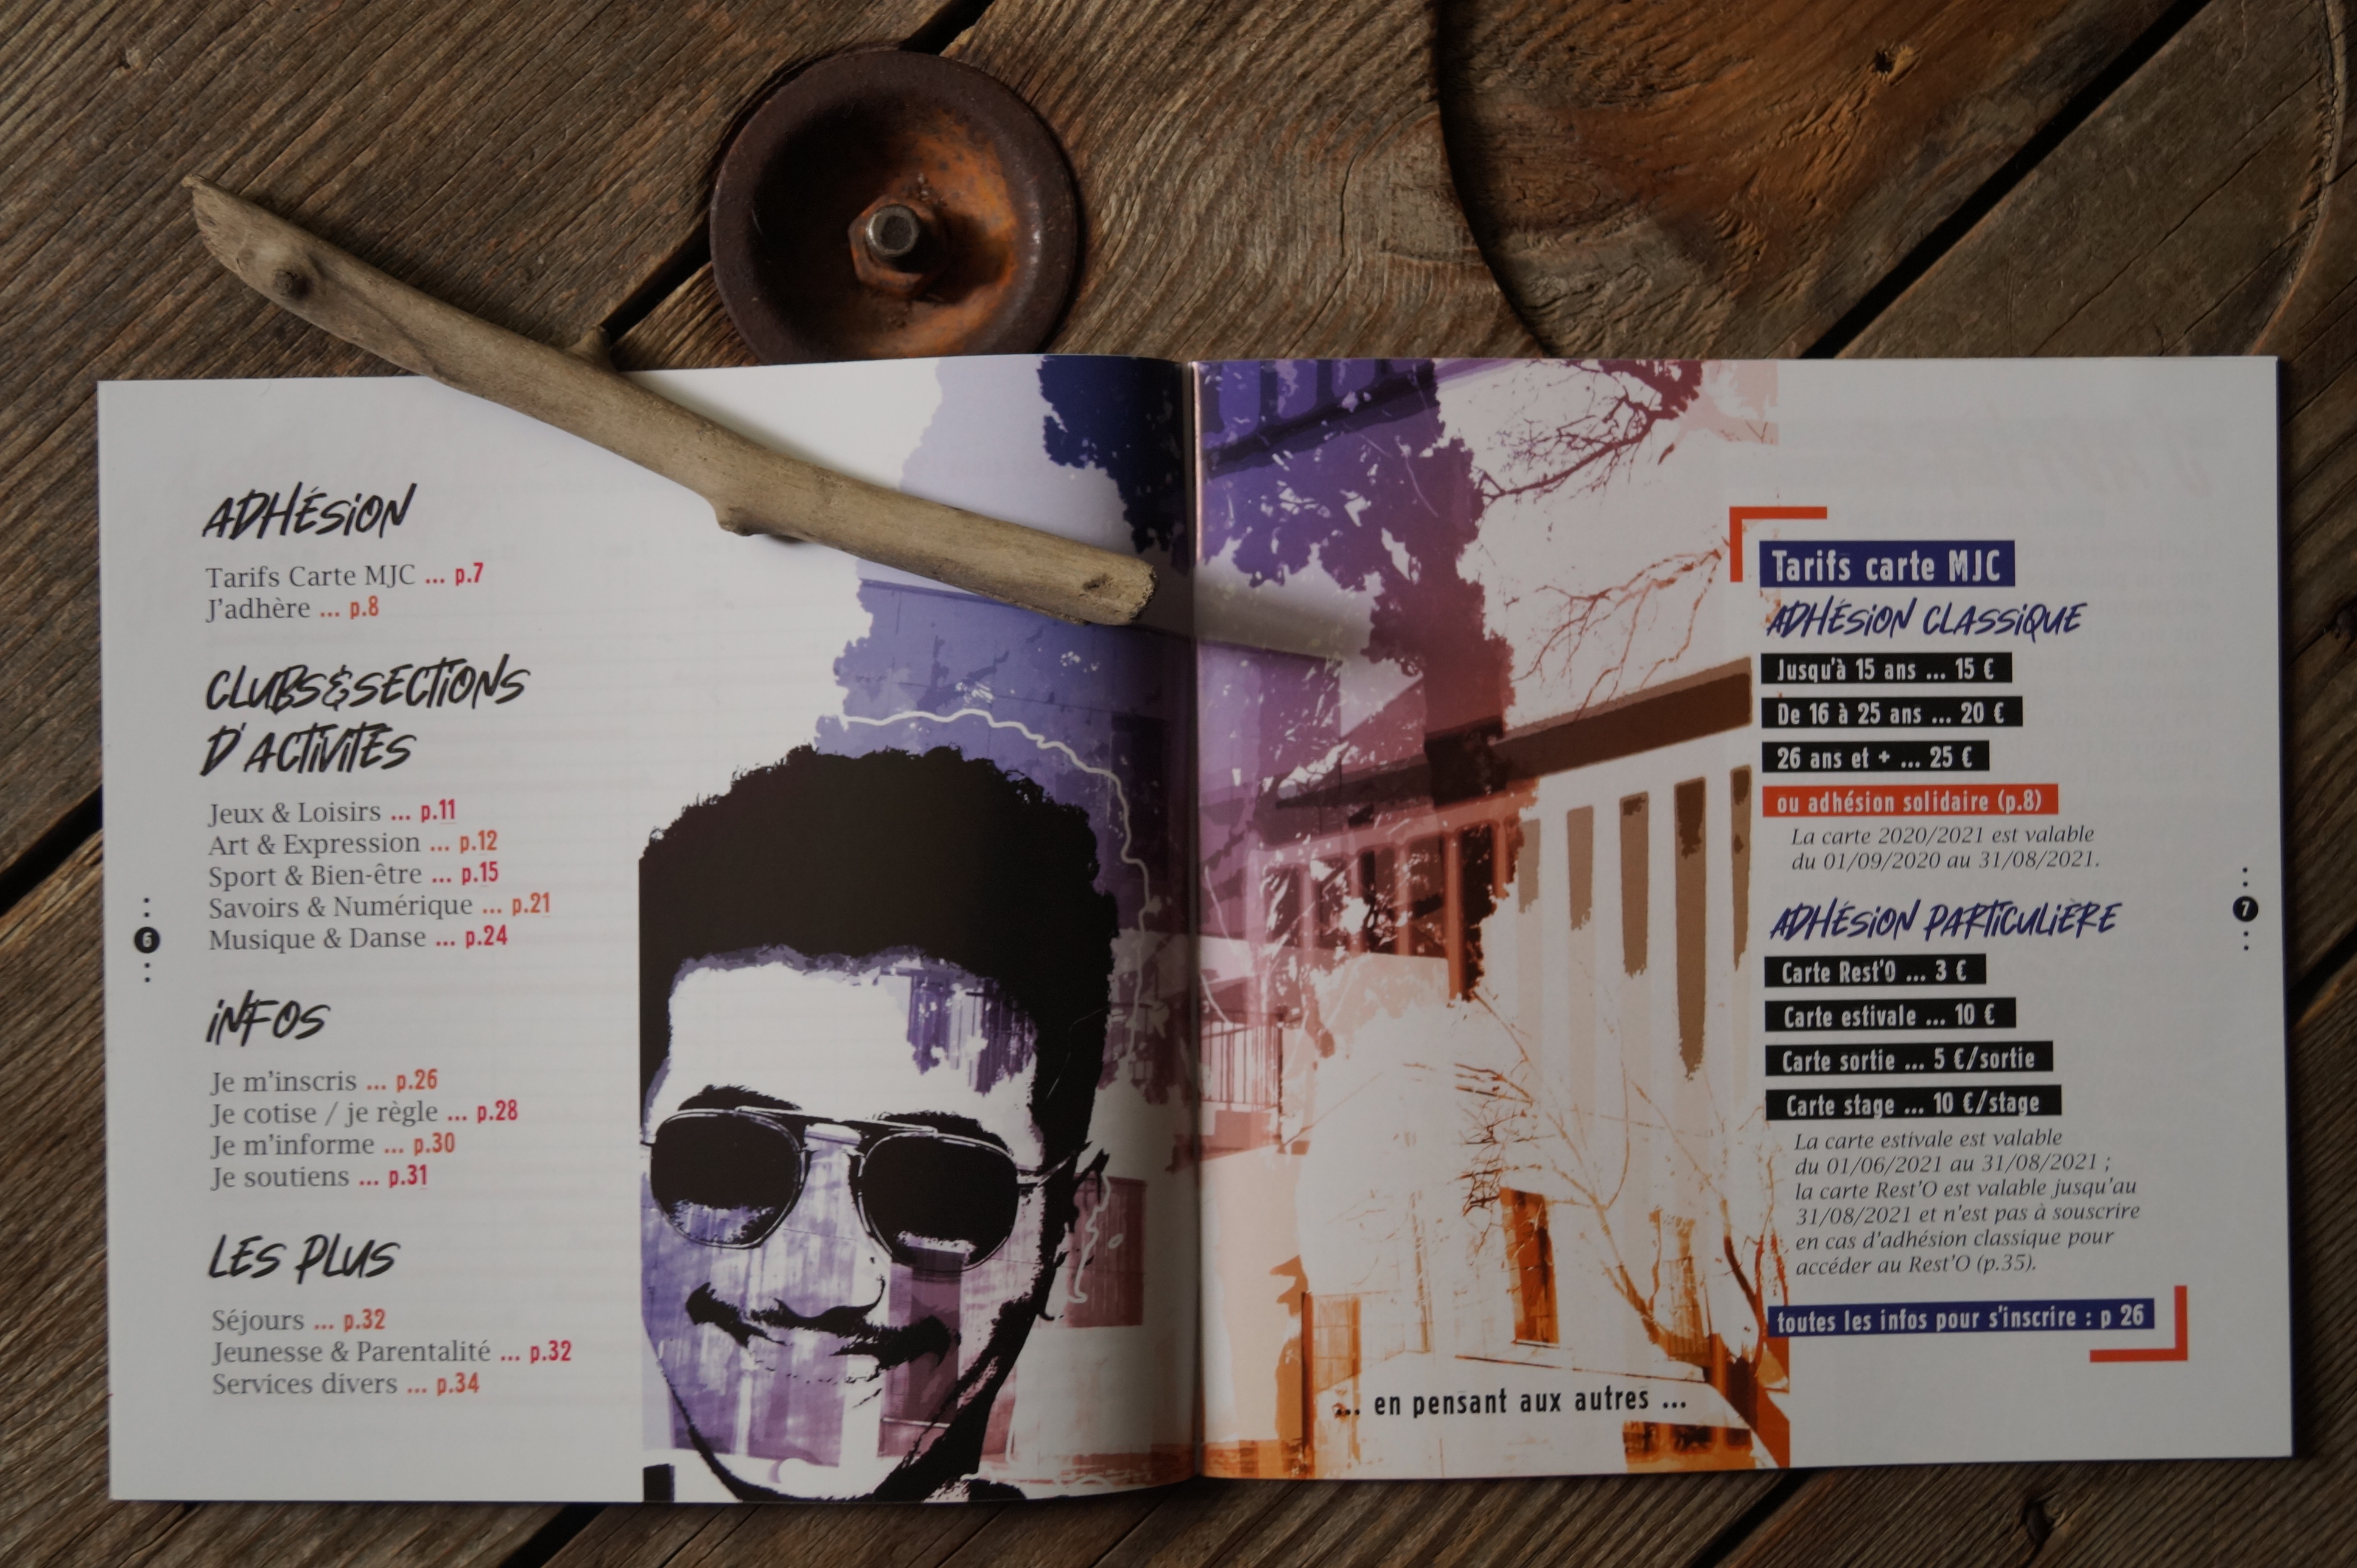 ADHÉSiON
Tarifs Carte MJC ... p.7
J'adhère ... p.8
CLUBS&SECTiONS
D'ACTiViTÉS
Jeux & Loisirs ... p.11
Art & Expression ... p.12
Sport & Bien-être ... p.15
Savoirs & Numérique ... p.21
Musique & Danse ... p.24
iNFOS
Je m'inscris ... p.26
Je cotise / je règle ... p.28
Je m'informe ... p.30
Je soutiens ... p.31
LES PLUS
Séjours ... p.32
Jeunesse & Parentalité ... p.32
Services divers ... p.34
6
Tarifs carte MJC
ADHÉSiON CLASSiQUE
Jusqu'à 15 ans ... 15 €
De 16 à 25 ans ... 20 €
26 ans et + ... 25 €
ou adhésion solidaire (p.8)
La carte 2020/2021 est valable
du 01/09/2020 au 31/08/2021.
ADHÉSiON PARTiCULiÈRE
Carte Rest'O ... 3 €
Carte estivale ... 10 €
Carte sortie ... 5 €/sortie
Carte stage ... 10 €/stage
La carte estivale est valable
du 01/06/2021 au 31/08/2021 ;
la carte Rest'O est valable jusqu'au
31/08/2021 et n'est pas à souscrire
en cas d'adhésion classique pour
accéder au Rest'O (p.35).
toutes les infos pour s'inscrire : p 26
... en pensant aux autres ...
7